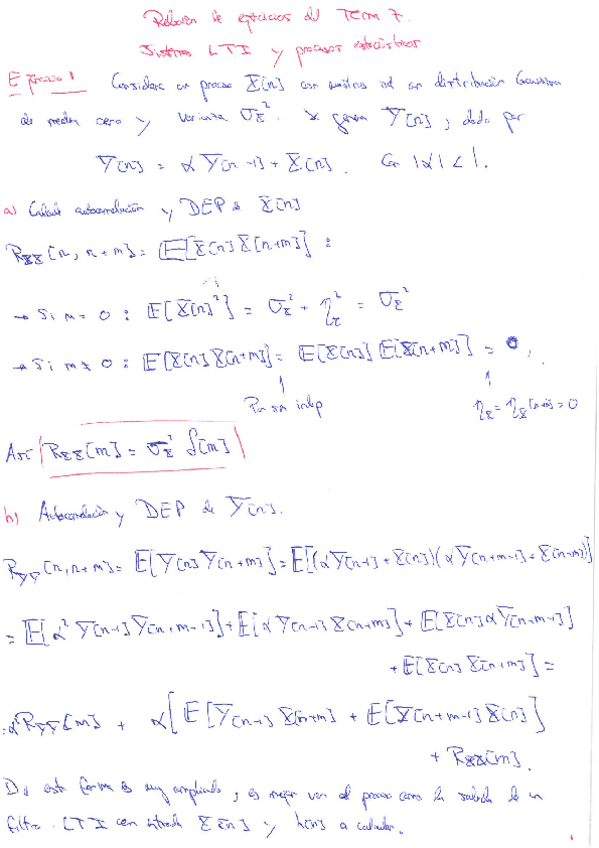 Relación de ejercicios del Tema 7.
Sistemas LTI y procesos estocásticos
Ejercicio 1 Considere un proceso X[n] con muestras ind con distribución Gaussiana
de media cero y varianza σ_X². Se genera Y[n], dado por
Y[n] = α Y[n-1] + X[n]. Con |α| < 1.
a) Calcule autocorrelación y DEP de X[n]
R_XX[n, n+m] = E[X[n] X[n+m]] :
→ Si m = 0 : E[X[n]²] = σ_X² + η_X² = σ_X²
→ Si m ≠ 0 : E[X[n] X[n+m]] = E[X[n]] E[X[n+m]] = 0,
↑ ↑
Por ser indep η_X = η_X[n+m] = 0
Así R_XX[m] = σ_X² δ[m]
b) Autocorrelación y DEP de Y[n].
R_YY[n, n+m] = E[Y[n] Y[n+m]] = E[(αY[n-1] + X[n])(αY[n+m-1] + X[n+m])]
= E[α² Y[n-1] Y[n+m-1]] + E[α Y[n-1] X[n+m]] + E[X[n] α Y[n+m-1]]
+ E[X[n] X[n+m]] =
= α² R_YY[m] + α[E[Y[n-1] X[n+m] + E[Y[n+m-1] X[n]]
+ R_XX[m].
De esta forma es muy complicado, es mejor ver el proceso como la salida de un
filtro LTI con entrada X[n] y h[n] a calcular.